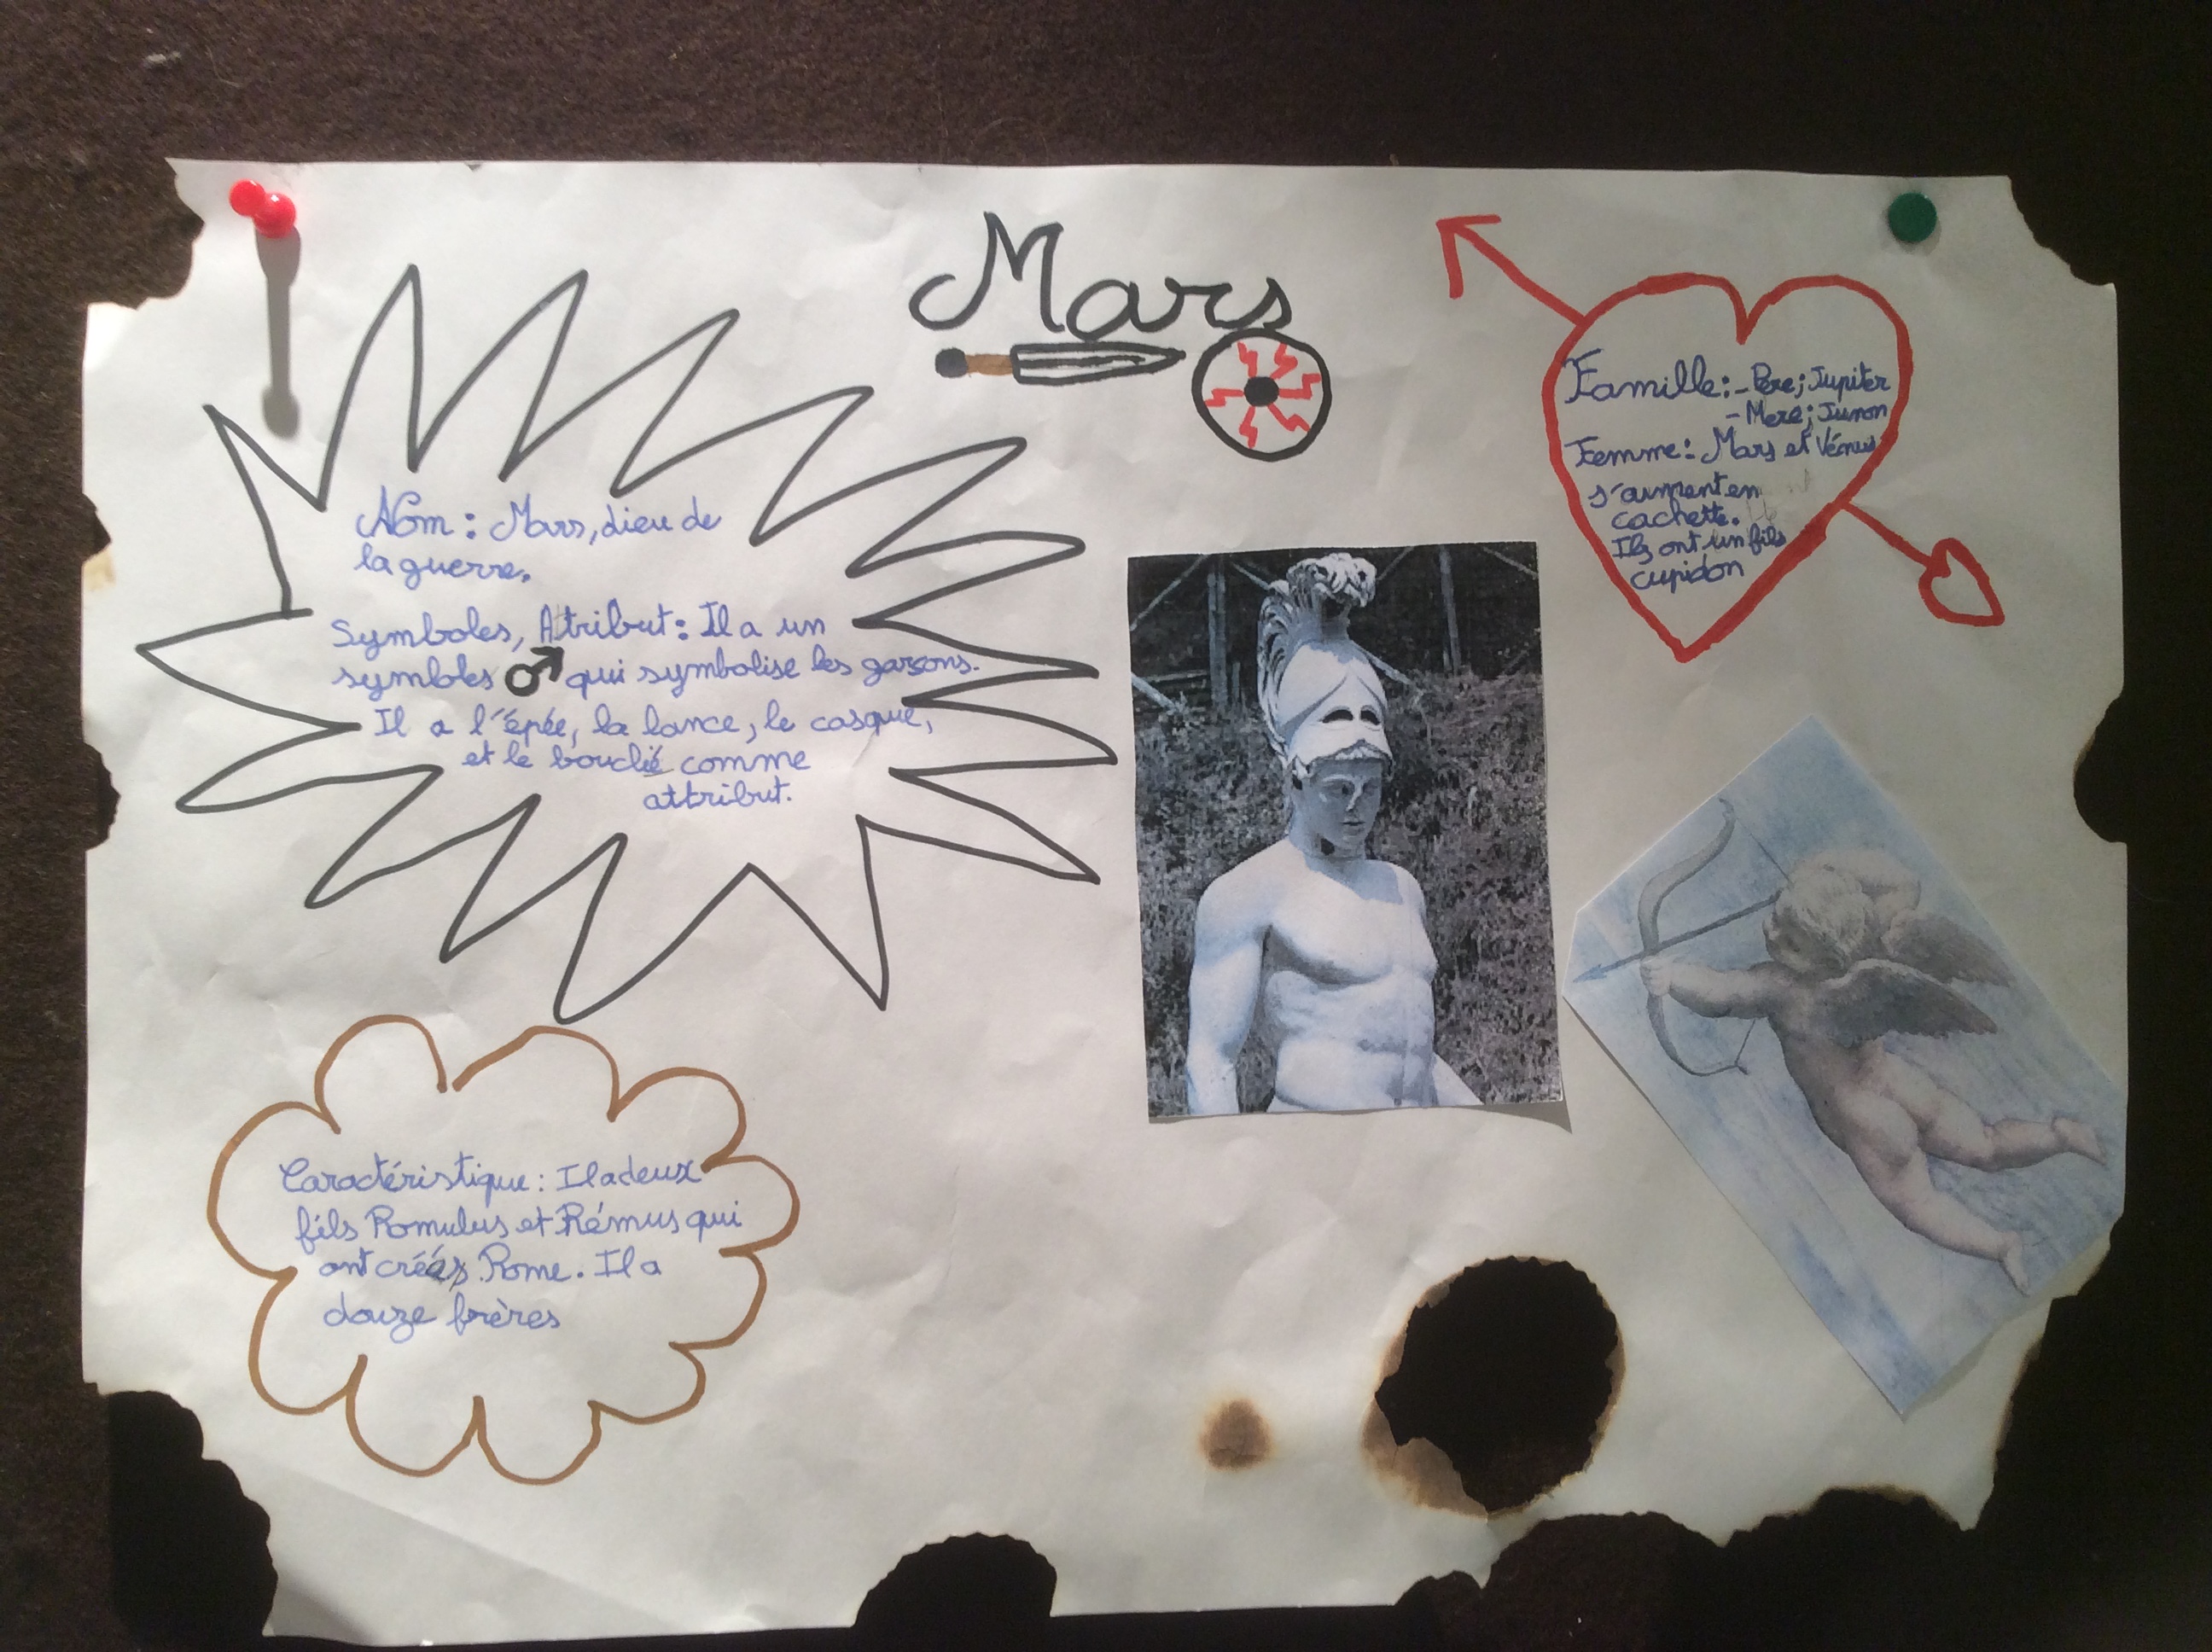 Mars
Nom : Mars, dieu de
la guerre.
Symboles, Atribut : Il a un
symbles ♂ qui symbolise les garçons.
Il a l'épée, la lance, le casque,
et le bouclié comme
attribut.
Famille : - Pere ; Jupiter
- Mere ; Junon
Femme : Mars et Vénus
s'aiment en
cachette.
Ils ont un fils
cupidon
Caractéristique : Il a deux
fils Romulus et Rémus qui
ont créés Rome. Il a
douze frères